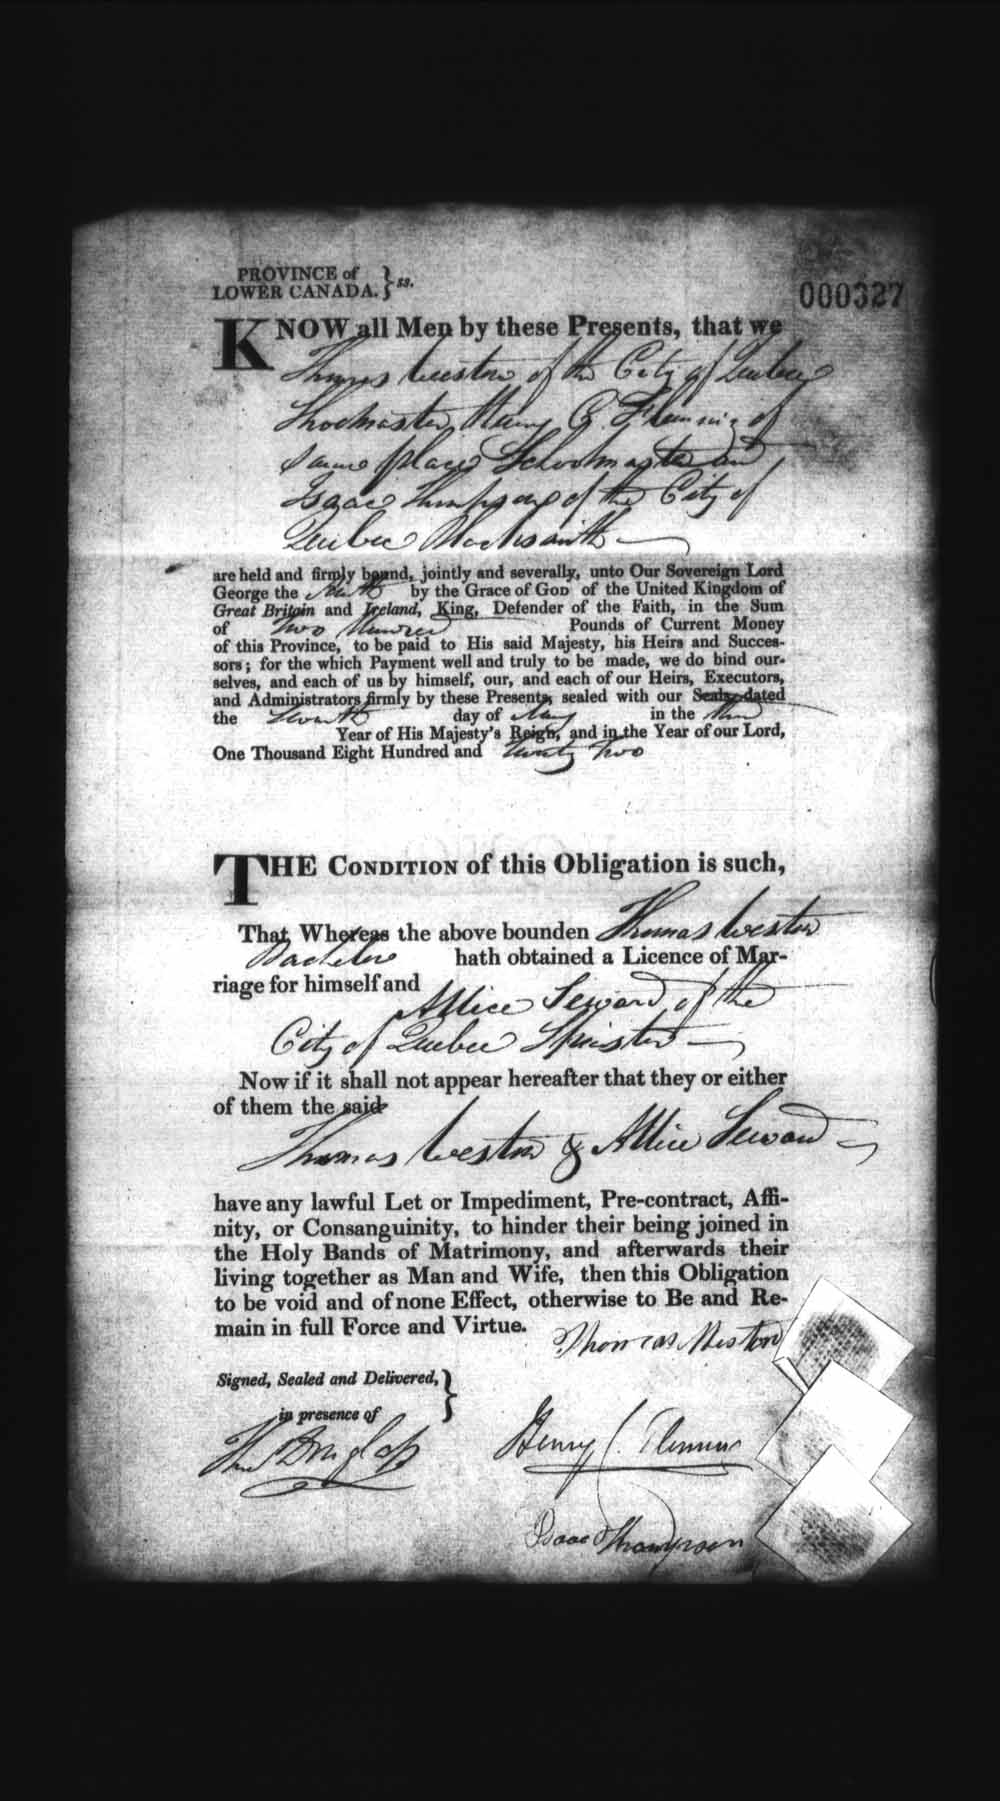 PROVINCE of
LOWER CANADA. } ss.
000327
KNOW all Men by these Presents, that we
Thomas Weston of the City of Quebec
Henry C. of
same place Schoolmaster and
Isaac Thompson of the City of
Quebec Blacksmith
are held and firmly bound, jointly and severally, unto Our Sovereign Lord
George the by the Grace of GOD of the United Kingdom of
Great Britain and Ireland, King, Defender of the Faith, in the Sum
of Two Hundred Pounds of Current Money
of this Province, to be paid to His said Majesty, his Heirs and Succes-
sors; for the which Payment well and truly to be made, we do bind our-
selves, and each of us by himself, our, and each of our Heirs, Executors,
and Administrators firmly by these Presents, sealed with our Seals, dated
the day of May in the Third
Year of His Majesty's Reign, and in the Year of our Lord,
One Thousand Eight Hundred and Twenty Two
THE CONDITION of this Obligation is such,
That Whereas the above bounden Thomas Weston
Bachelor hath obtained a Licence of Mar-
riage for himself and
Allice Seward of the
City of Quebec Spinster
Now if it shall not appear hereafter that they or either
of them the said
Thomas Weston & Allice Seward
have any lawful Let or Impediment, Pre-contract, Affi-
nity, or Consanguinity, to hinder their being joined in
the Holy Bands of Matrimony, and afterwards their
living together as Man and Wife, then this Obligation
to be void and of none Effect, otherwise to Be and Re-
main in full Force and Virtue.
Thomas Weston
Signed, Sealed and Delivered, }
in presence of
Henry C.
Isaac Thompson